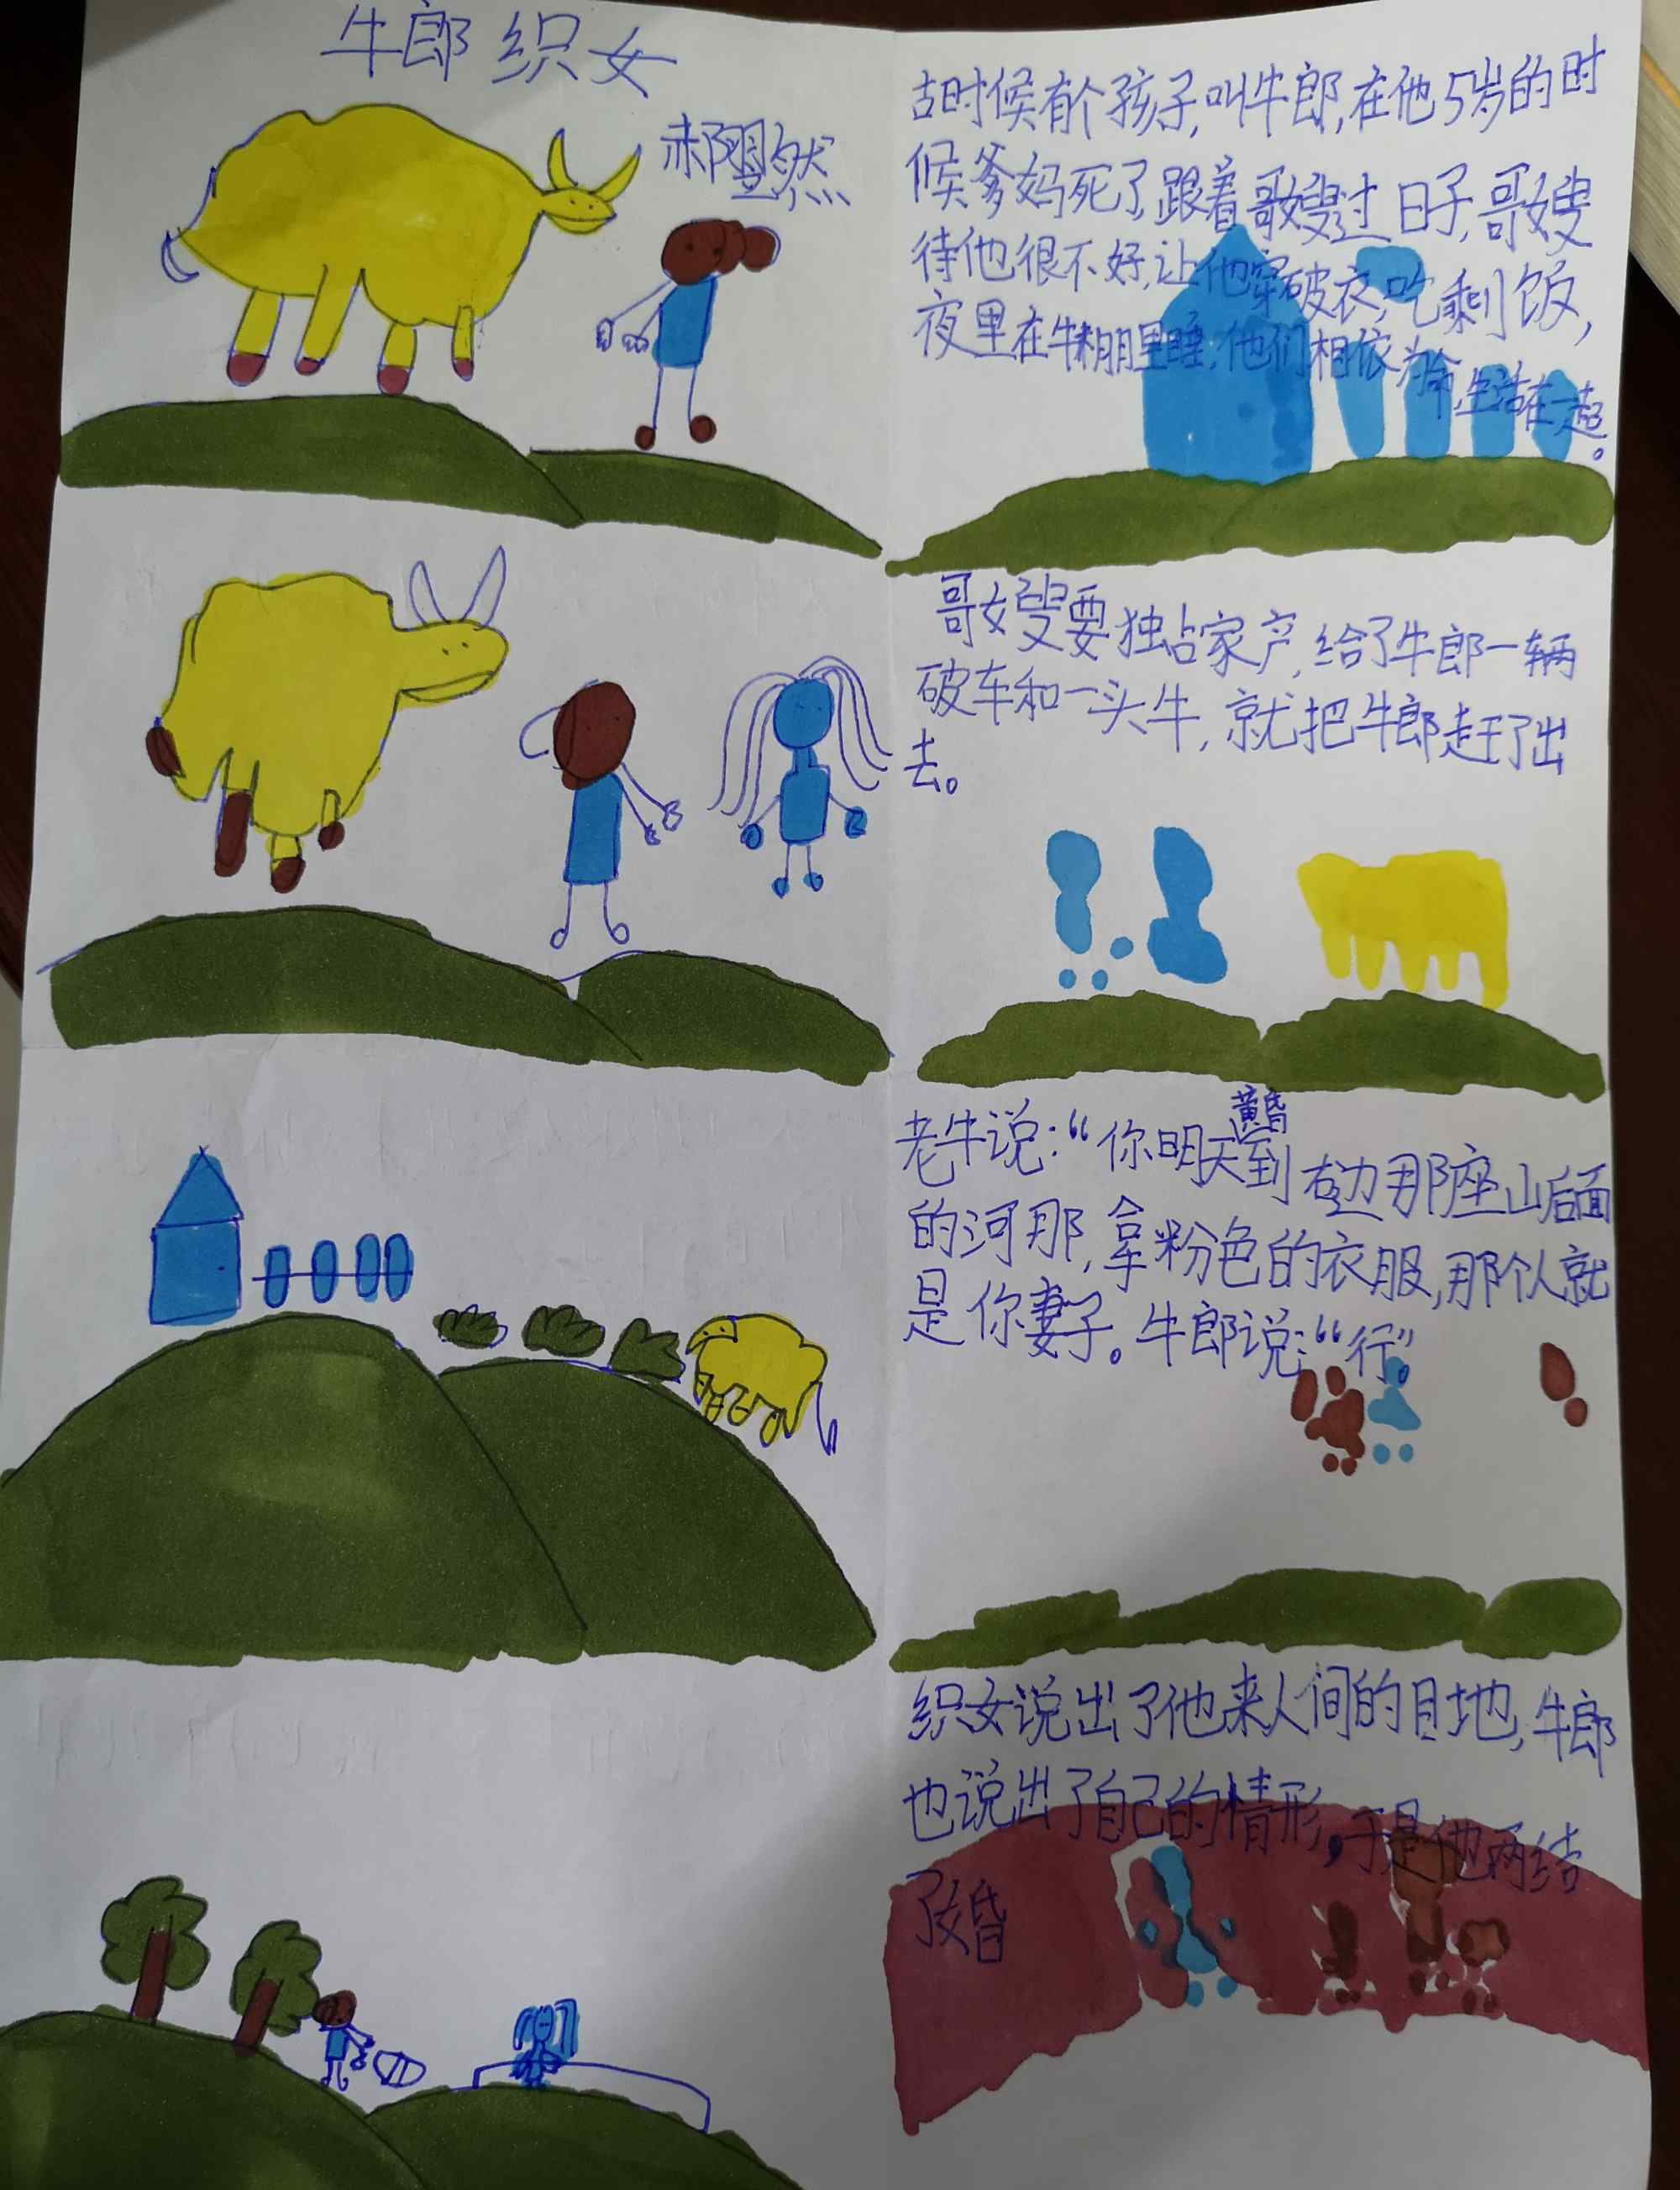 牛郎织女
郝显然
古时候有个孩子,叫牛郎,在他5岁的时
候爹妈死了,跟着哥嫂过日子,哥嫂
待他很不好,让他穿破衣,吃剩饭,
夜里在牛棚里睡,他们相依为命,生活在一起。
哥嫂要独占家产,给了牛郎一辆
破车和一头牛,就把牛郎赶了出
去。
老牛说:“你明天黄昏到右边那座山后面
的河那,拿粉色的衣服,那个人就
是你妻子。牛郎说:“行”。
织女说出了他来人间的目地,牛郎
也说出了自己的情形,于是他两结
了婚